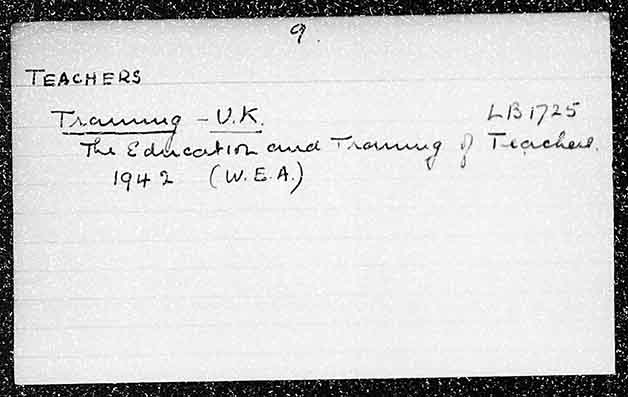 9.
TEACHERS
Training - U.K. LB1725
The Education and Training of Teachers.
1942 (W.E.A.)